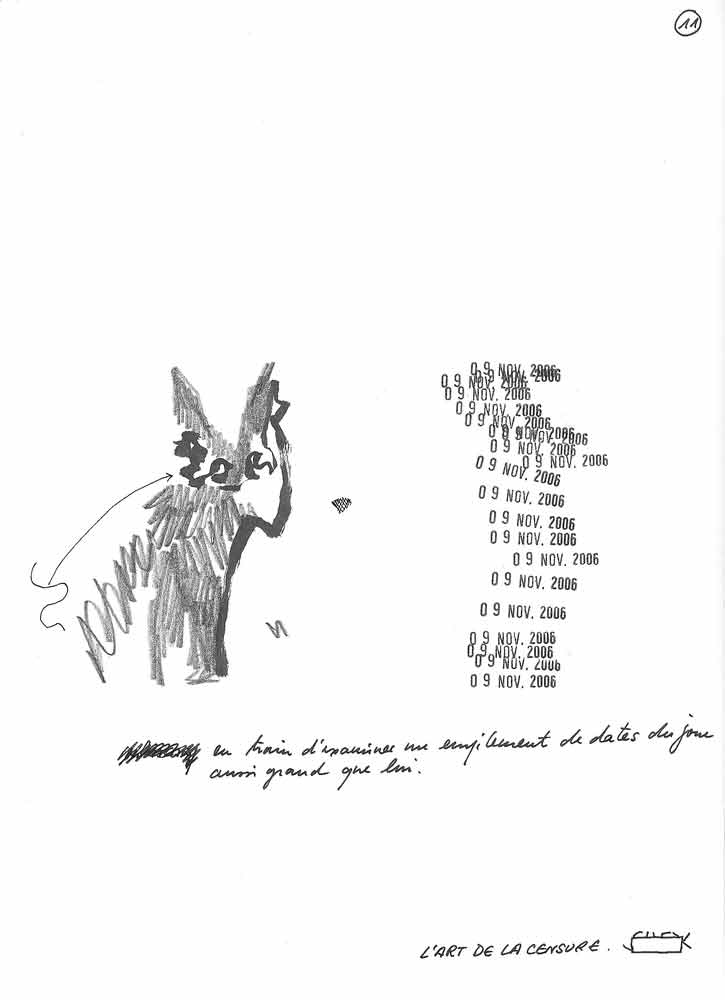 11
09 NOV. 2006
09 NOV. 2006
09 NOV. 2006
09 NOV. 2006
09 NOV. 2006
09 NOV. 2006
09 NOV. 2006
09 NOV. 2006
09 NOV. 2006
09 NOV. 2006
09 NOV. 2006
09 NOV. 2006
09 NOV. 2006
09 NOV. 2006
09 NOV. 2006
09 NOV. 2006
09 NOV. 2006
09 NOV. 2006
09 NOV. 2006
09 NOV. 2006
09 NOV. 2006
en train d'examiner un empilement de dates du jour
aussi grand que lui.
L'ART DE LA CENSURE.